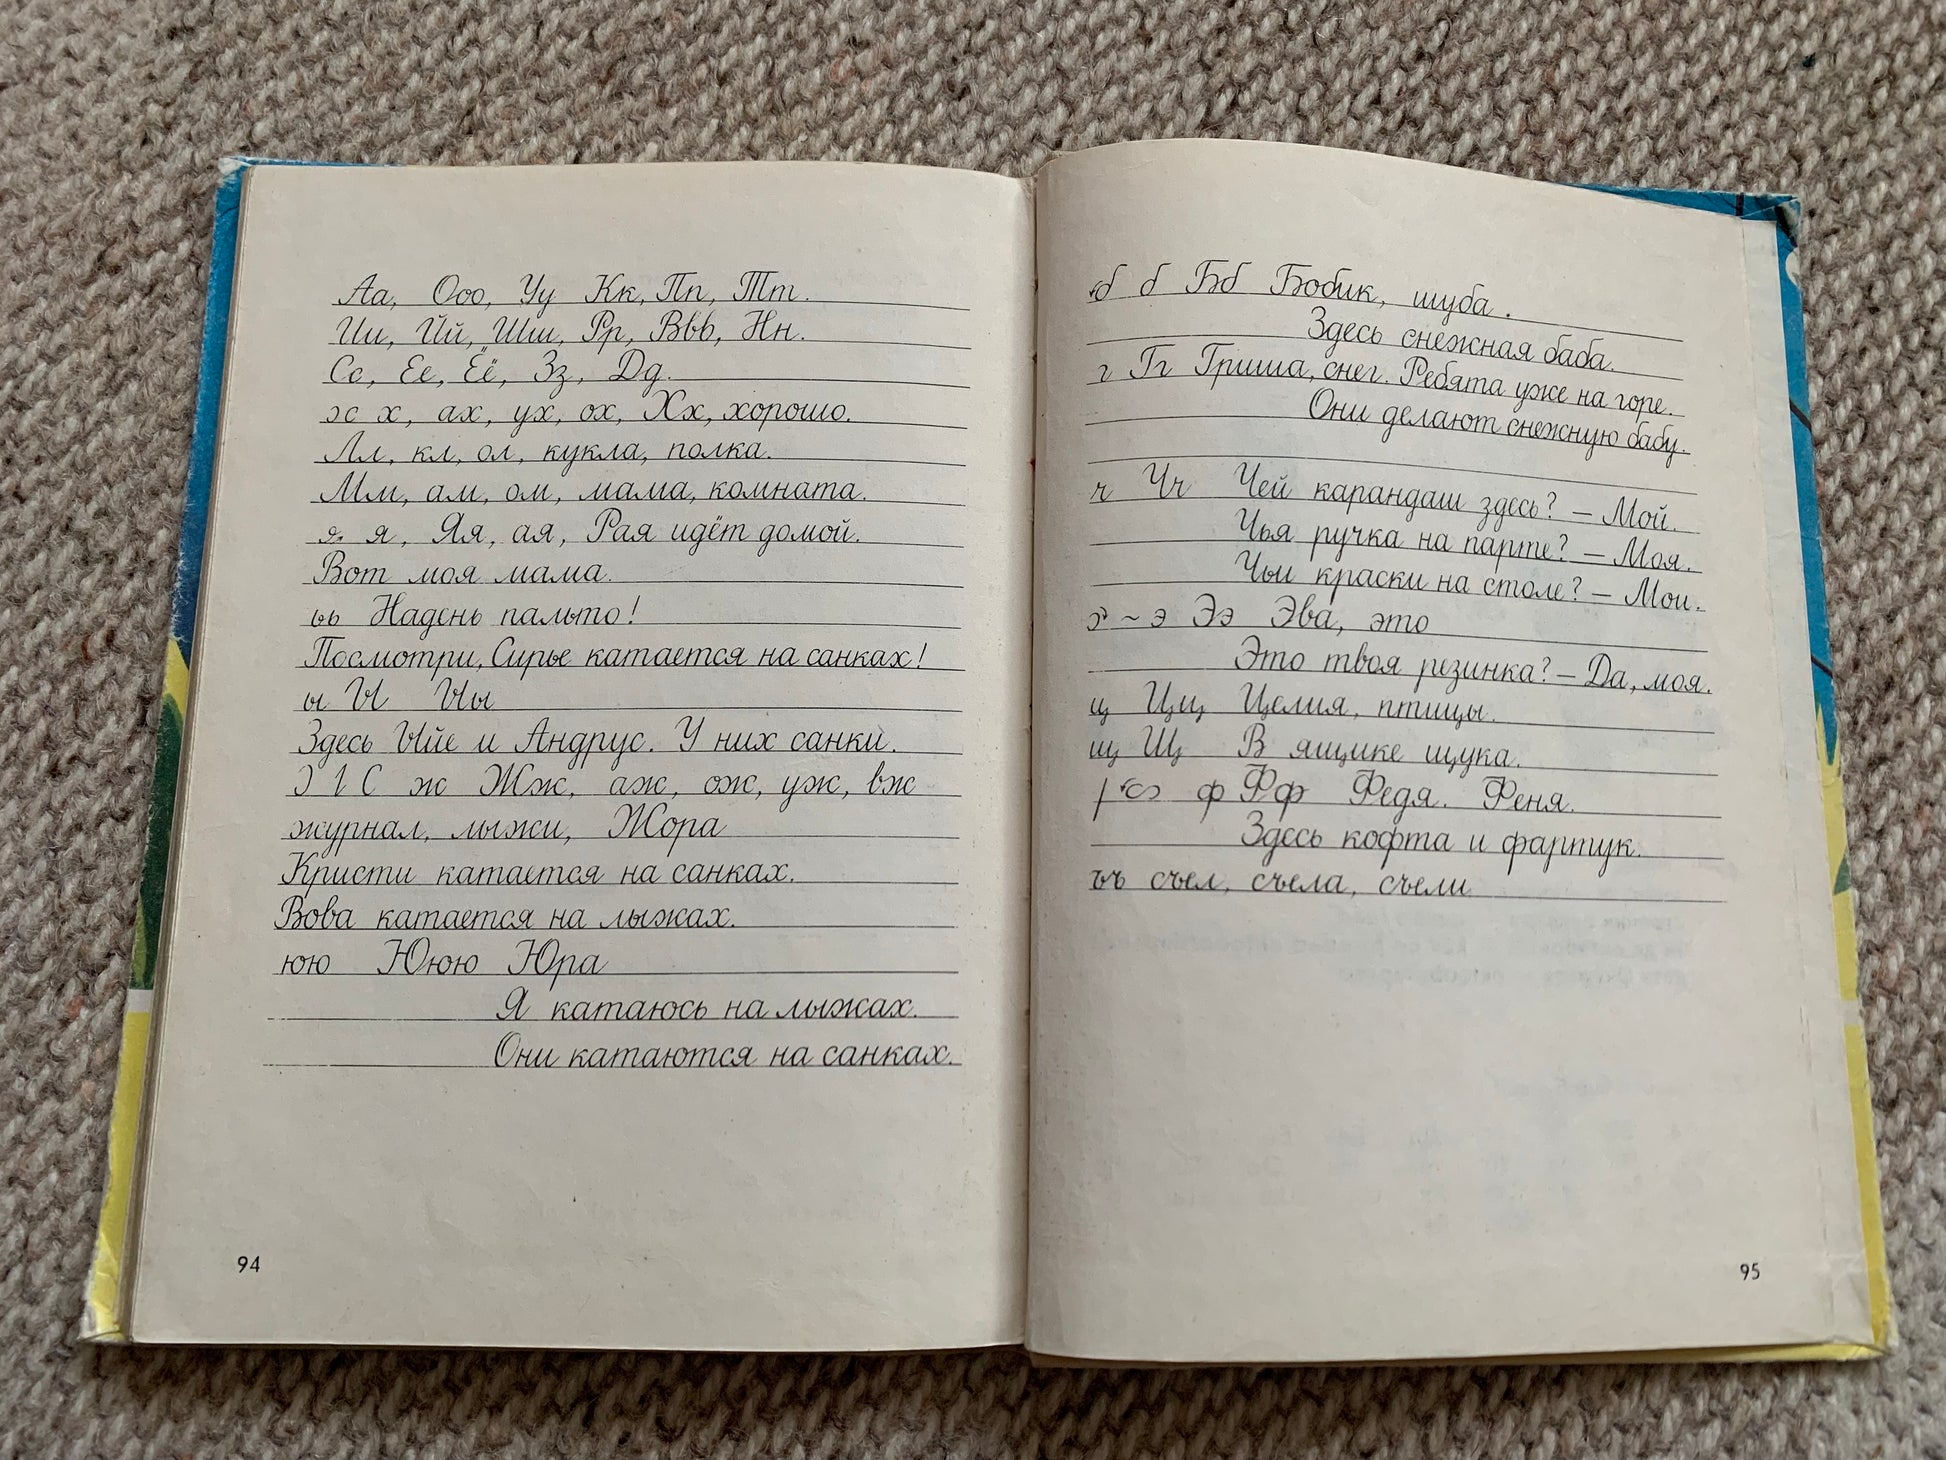 Аа, Ооо, Уу Кк, Пп, Тт.
Ии, Йй, Шш, Рр, Ввв, Нн.
Сс, Ее, Ёё, Зз, Дд.
х х, ах, ух, ох, Хх, хорошо.
Лл, кл, ол, кукла, полка.
Мм, ам, ом, мама, комната.
я я, Яя, ая, Рая идёт домой.
Вот моя мама.
ьь Надень пальто!
Посмотри, Сирье катается на санках!
ы Ы Ыы
Здесь Ыйе и Андрус. У них санки.
ж Жж, аж, ож, уж, вж
журнал, лыжи, Жора
Кристи катается на санках.
Вова катается на лыжах.
юю Ююю Юра
Я катаюсь на лыжах.
Они катаются на санках.
94
б б Бб Бобик, шуба.
Здесь снежная баба.
г Гг Гриша, снег. Ребята уже на горе.
Они делают снежную бабу.
ч Чч Чей карандаш здесь? – Мой.
Чья ручка на парте? – Моя.
Чьи краски на столе? – Мои.
э ~ э Ээ Эва, это
Это твоя резинка? – Да, моя.
ц Цц Целия, птицы.
щ Щ В ящике щука.
ф Фф Федя. Феня.
Здесь кофта и фартук.
ъъ съел, съела, съели
95